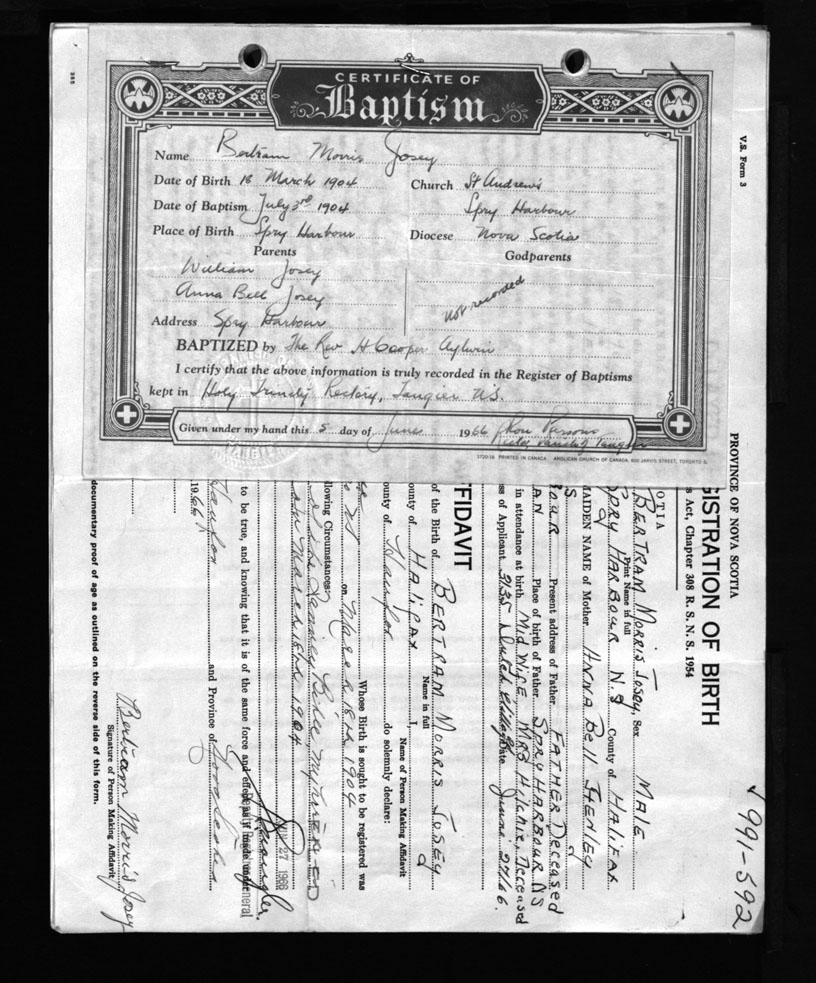 CERTIFICATE OF
Baptism
Name Bertram Morris Josey
Date of Birth 18 March 1904
Church St Andrew's
Date of Baptism July 3rd 1904
Spry Harbour
Place of Birth Spry Harbour
Diocese Nova Scotia
Parents
Godparents
William Josey
Anna Bell Josey
not recorded
Address Spry Harbour
BAPTIZED by The Rev H Cooper Aylwin
I certify that the above information is truly recorded in the Register of Baptisms
kept in Holy Trinity Rectory, Tangier N.S.
Given under my hand this 5 day of June 1966
PRINTED IN CANADA ANGLICAN CHURCH OF CANADA, 600 JARVIS STREET, TORONTO 5.
V.S. Form 3
991-592
PROVINCE OF NOVA SCOTIA
GISTRATION OF BIRTH
s Act, Chapter 308 R. S. N. S. 1954
OTIA
BERTRAM MORRIS JOSEY, Sex MALE
Print Name in full
SPRY HARBOUR N.S County of HALIFAX
MAIDEN NAME of Mother ANNA BELL HENLEY
Present address of Father FATHER Deceased
Place of birth of Father SPRY HARBOUR NS
in attendance at birth MidWiFE MRS HILCHIE, DECEASED
ss of Applicant 3135 Dutch Village Date June 27/66.
FFIDAVIT
of the Birth of BERTRAM MORRIS JOSEY
Name in full
ounty of HALIFAX I,
Name of Person Making Affidavit
ounty of Halifax do solemnly declare:
Whose Birth is sought to be registered was
on March 18th 1904
llowing Circumstances:
on March 18th 1904
to be true, and knowing that it is of the same force and effect as if made under
JUN 27 1966
Halifax and Province of Nova Scotia
1966
Bertram Morris Josey
Signature of Person Making Affidavit
documentary proof of age as outlined on the reverse side of this form.